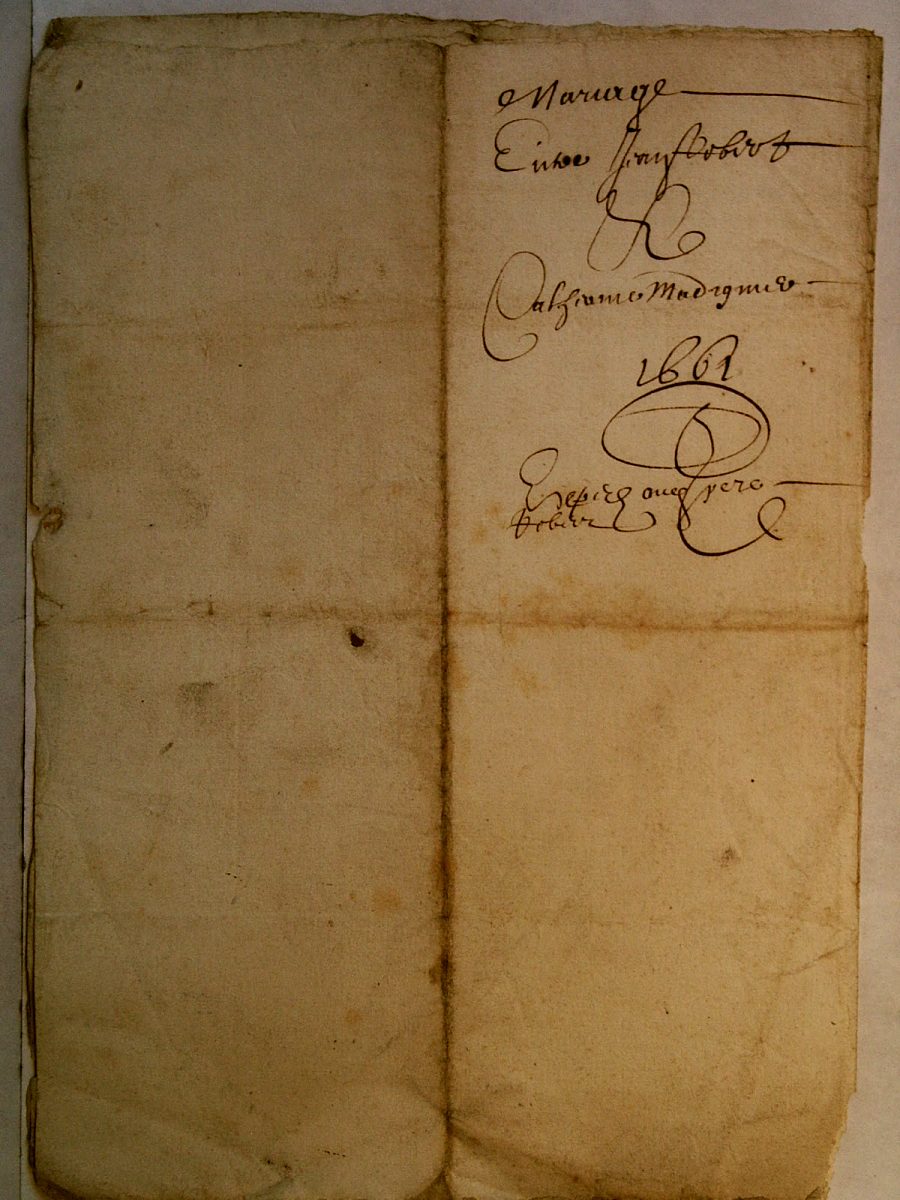 Mariage
Entre Jean Robert
&
Catherine Madignier
1661
Expedié audᵗ pere
Robert